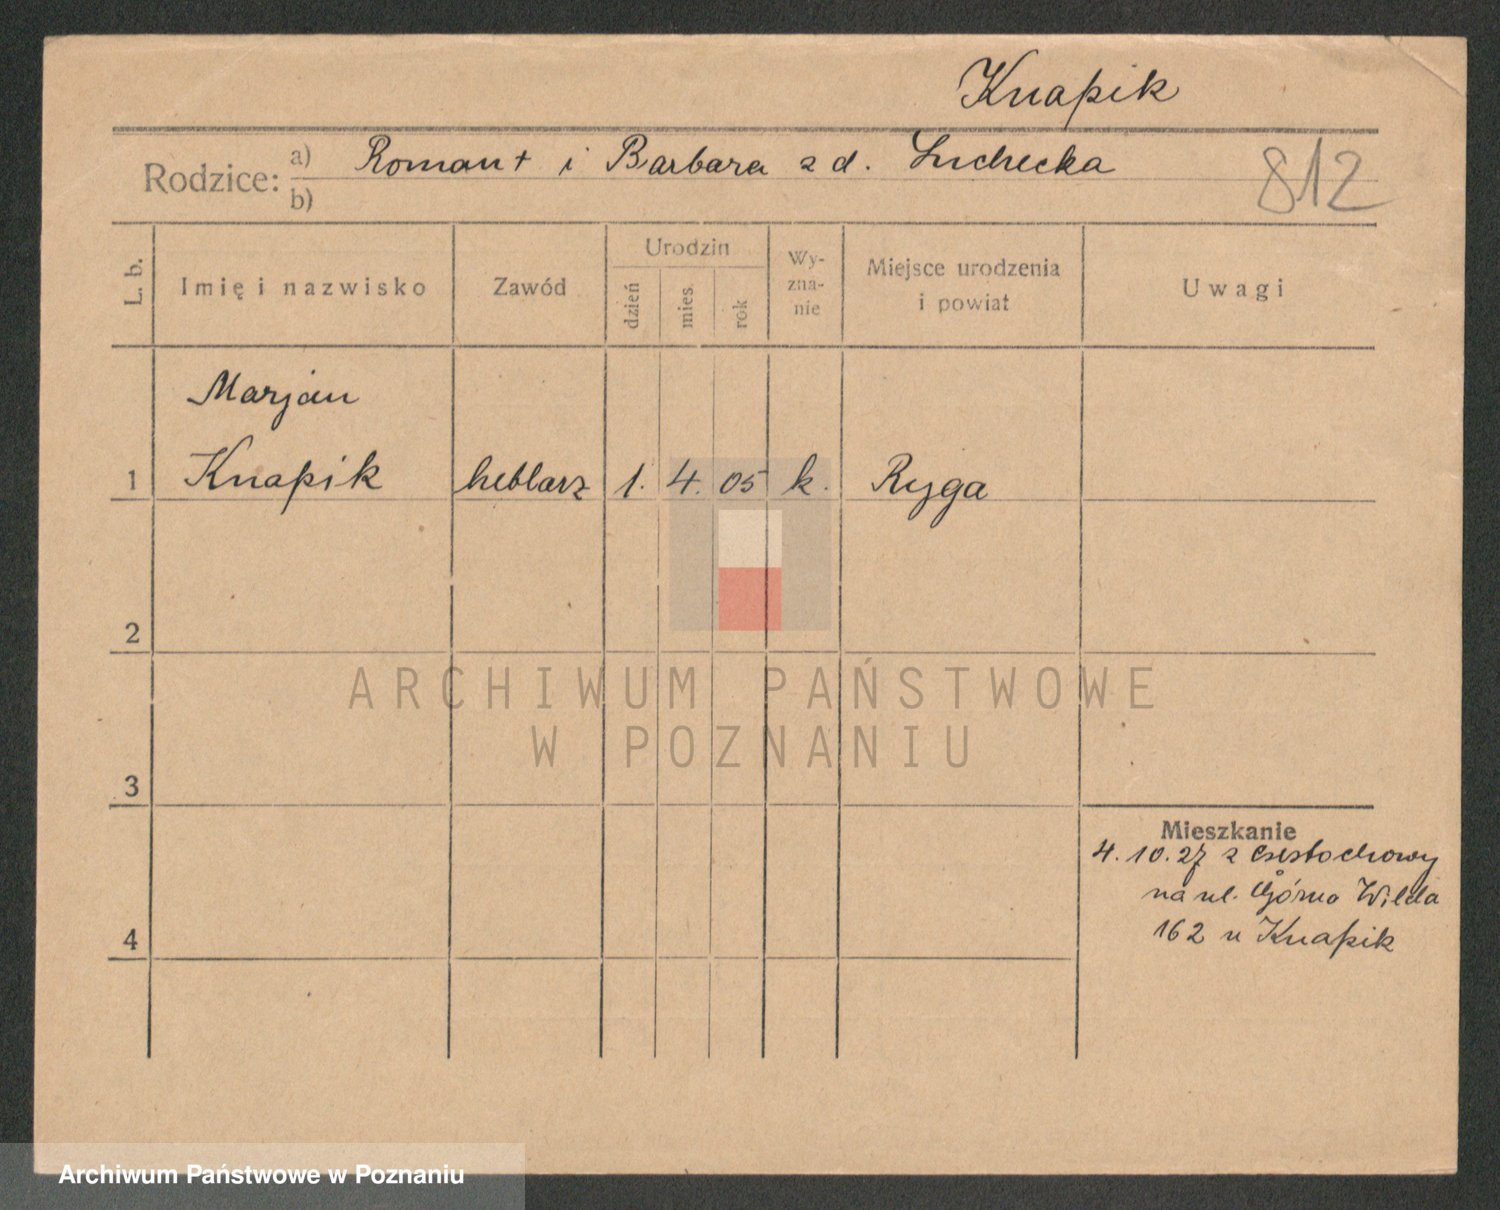 Knapik
Rodzice: a) Roman + i Barbara z d. Suchecka
b)
812
L. b.
Imię i nazwisko
Zawód
Urodzin
dzień
mies.
rok
Wy-
zna-
nie
Miejsce urodzenia
i powiat
Uwagi
Marjan
1 Knapik heblarz 1. 4. 05 k. Ryga
2
ARCHIWUM PAŃSTWOWE
W POZNANIU
3
Mieszkanie
4. 10. 27 z Częstochowy
na ul. Górna Wilda
162 u Knapik
4
Archiwum Państwowe w Poznaniu